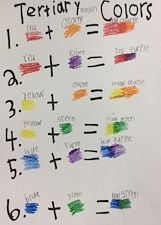 Tertiary Colors
1. red + orange =
2. red + = red purple
3. yellow + orange = yellow orange
4. yellow + green = green
5. blue + purple = blue purple
6. blue + green = green